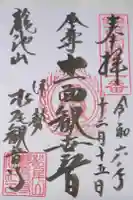 奉拝
令和六年
十二月十五日
本尊
十一面観世音
龍池山
伊勢
松尾観音寺